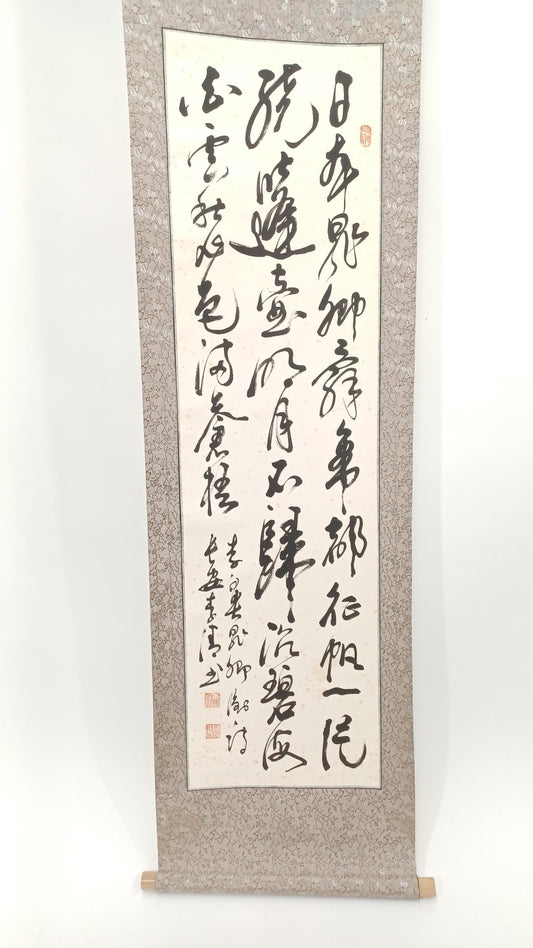 日本晁卿辭帝都征帆一片
繞蓬壺明月不歸沉碧海
白雲愁色滿蒼梧
李白哭晁卿衡詩
長安李清书